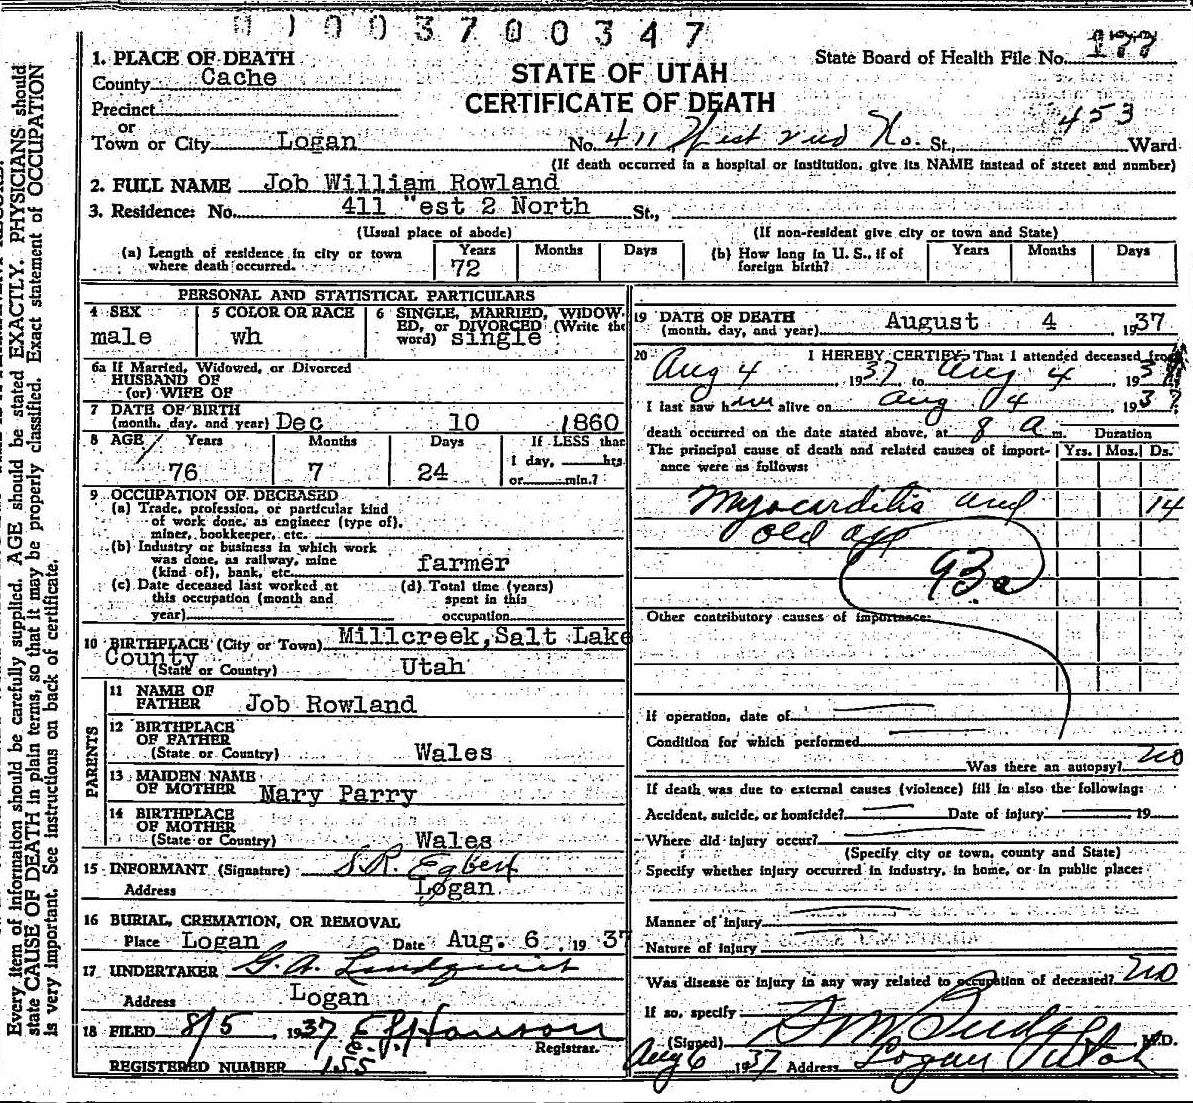 01003700347
1. PLACE OF DEATH
County Cache
Precinct
or
Town or City Logan
STATE OF UTAH
CERTIFICATE OF DEATH
State Board of Health File No. 177
453
No. 411 West 2nd No. St., Ward
(If death occurred in a hospital or institution, give its NAME instead of street and number)
2. FULL NAME Job William Rowland
3. Residence: No. 411 "est 2 North St.,
(Usual place of abode) (If non-resident give city or town and State)
(a) Length of residence in city or town where death occurred. Years 72 Months Days
(b) How long in U. S., if of foreign birth? Years Months Days
PERSONAL AND STATISTICAL PARTICULARS
4 SEX male
5 COLOR OR RACE wh
6 SINGLE, MARRIED, WIDOWED, or DIVORCED (Write the word) single
6a If Married, Widowed, or Divorced
HUSBAND OF
(or) WIFE OF
7 DATE OF BIRTH
(month, day, and year) Dec 10 1860
8 AGE Years 76 Months 7 Days 24
If LESS than
1 day, hrs
or min.?
9 OCCUPATION OF DECEASED
(a) Trade, profession, or particular kind
of work done, as engineer (type of),
miner, bookkeeper, etc.
(b) Industry or business in which work
was done, as railway, mine
(kind of), bank, etc. farmer
(c) Date deceased last worked at
this occupation (month and
year)
(d) Total time (years)
spent in this
occupation
10 BIRTHPLACE (City or Town) Millcreek, Salt Lake
County
(State or Country) Utah
PARENTS
11 NAME OF
FATHER Job Rowland
12 BIRTHPLACE
OF FATHER
(State or Country) Wales
13 MAIDEN NAME
OF MOTHER Mary Parry
14 BIRTHPLACE
OF MOTHER
(State or Country) Wales
15 INFORMANT (Signature) S.R. Egbert
Address Logan
16 BURIAL, CREMATION, OR REMOVAL
Place Logan Date Aug. 6, 1937
17 UNDERTAKER G. A. Lindquist
Address Logan
18 FILED 8/5, 1937 Registrar.
REGISTERED NUMBER 155
19 DATE OF DEATH
(month, day, and year) August 4, 1937
20 I HEREBY CERTIFY, That I attended deceased from
Aug 4, 1937 to Aug 4, 1937
I last saw him alive on Aug 4 1937
death occurred on the date stated above, at 8 a m. Duration
The principal cause of death and related causes of importance were as follows: Yrs. Mos. Ds.
Myocarditis and 14
old age
93a
Other contributory causes of importance:
If operation, date of
Condition for which performed
Was there an autopsy? no
If death was due to external causes (violence) fill in also the following:
Accident, suicide, or homicide? Date of injury 19
Where did injury occur?
(Specify city or town, county and State)
Specify whether injury occurred in industry, in home, or in public place:
Manner of injury
Nature of injury
Was disease or injury in any way related to occupation of deceased? no
If so, specify
(Signed) M.D.
Aug 6 1937 Address Logan Utah
Every item of information should be carefully supplied. AGE should be stated EXACTLY. PHYSICIANS should
state CAUSE OF DEATH in plain terms, so that it may be properly classified. Exact statement of OCCUPATION
is very important. See instructions on back of certificate.